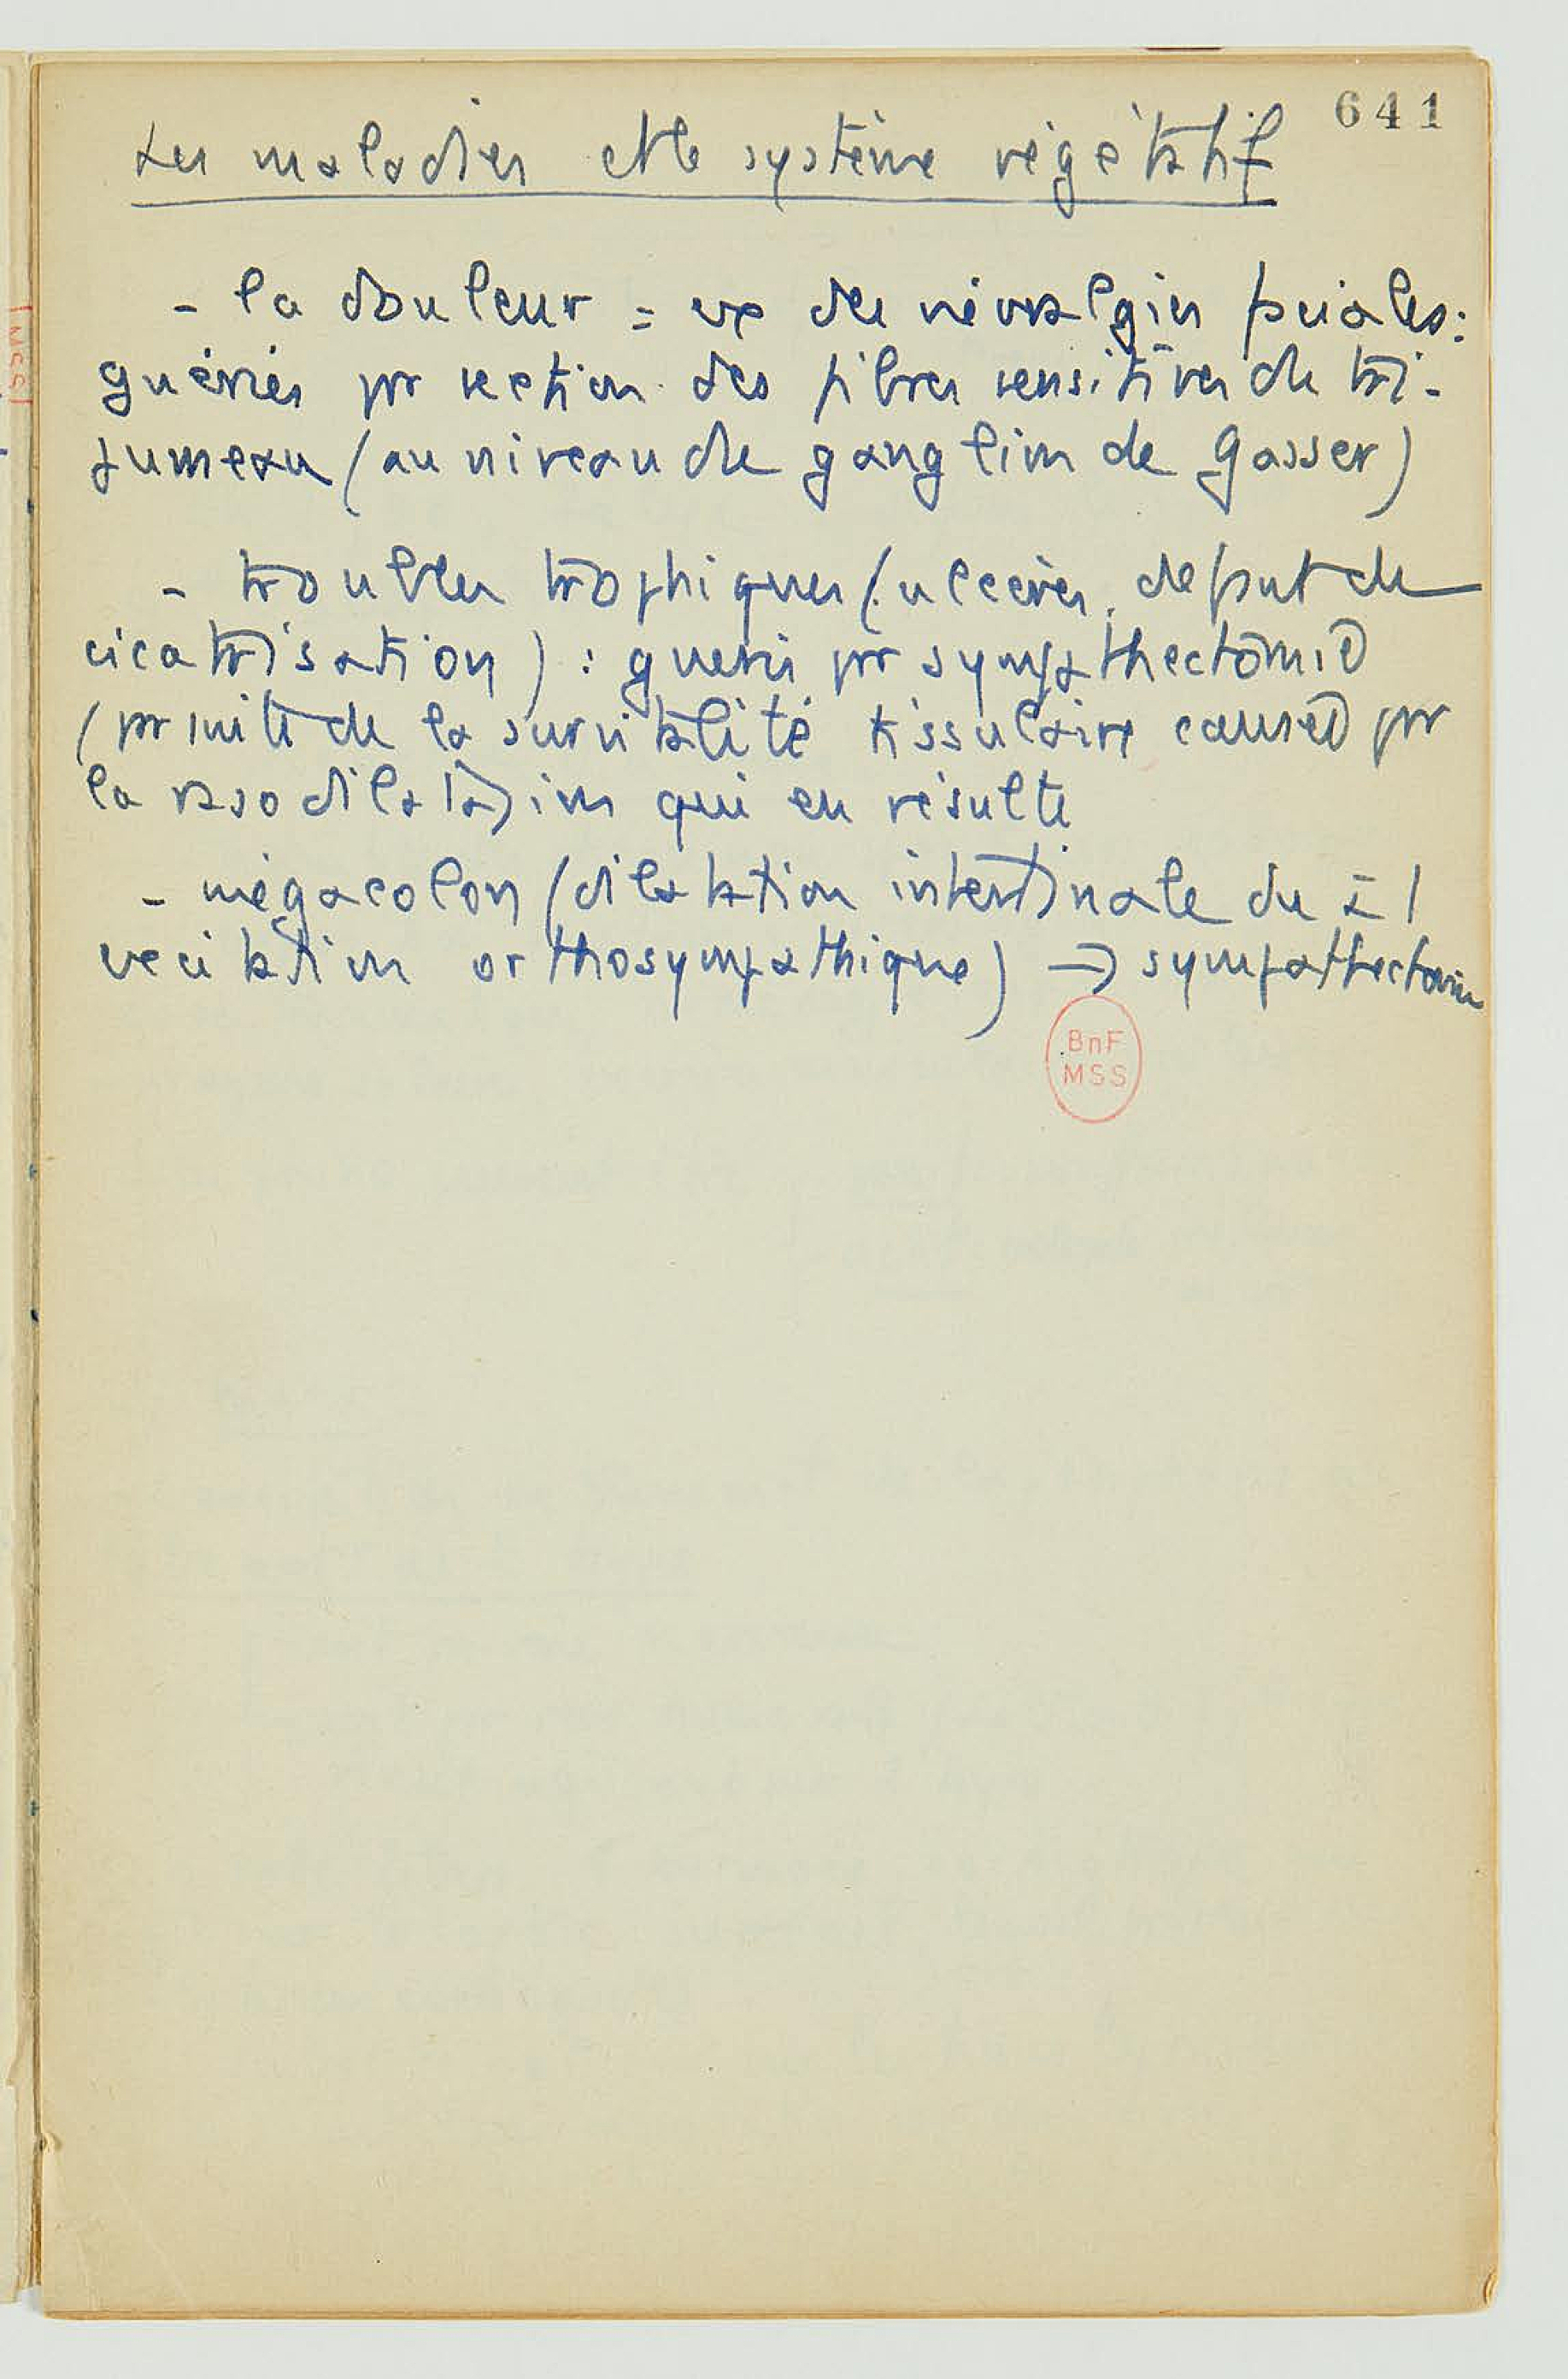 641
Les maladies et le système végétatif
- la douleur = ex des névralgies faciales :
guéries pr section des fibres sensitives du tri-
jumeau (au niveau du ganglion de Gasser)
- troubles trophiques (ulcères, défaut de
cicatrisation) : guéris pr sympathectomie
(pr suite de la survitalité tissulaire causée pr
la vasodilatation qui en résulte
- mégacolon (dilatation intestinale du à l
excitation orthosympathique) → sympathectomie
BnF
MSS